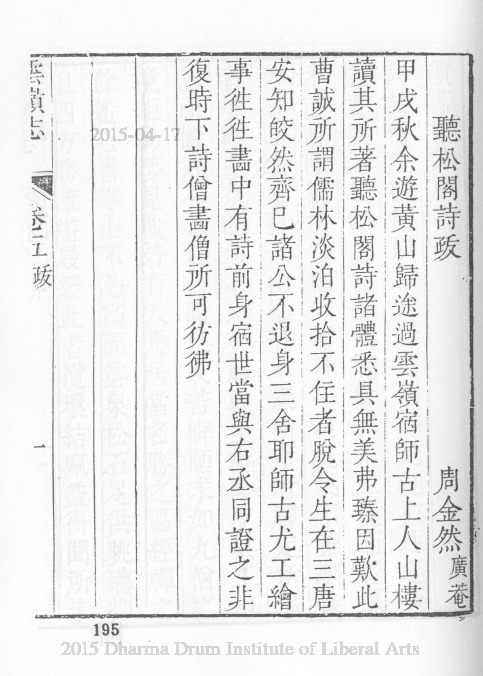 聽松閣詩跋
周金然廣菴
甲戌秋余遊黃山歸途過雲嶺宿師古上人山樓
讀其所著聽松閣詩諸體悉具無美弗臻因歎此
曹誠所謂儒林淡泊收拾不住者脫令生在三唐
安知皎然齊已諸公不退身三舍耶師古尤工繪
事徃徃畵中有詩前身宿世當與右丞同證之非
復時下詩僧畵僧所可彷彿
雲嶺志
卷五跋
一
195
2015-04-17
2015 Dharma Drum Institute of Liberal Arts